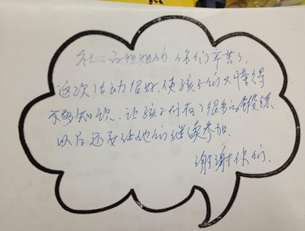 社工哥哥姐姐的,你们辛苦了,
这次活动很好,使孩子们又懂得
不少知识,让孩子们有了很多的锻练
以后还要让他们继续参加.
谢谢你们.